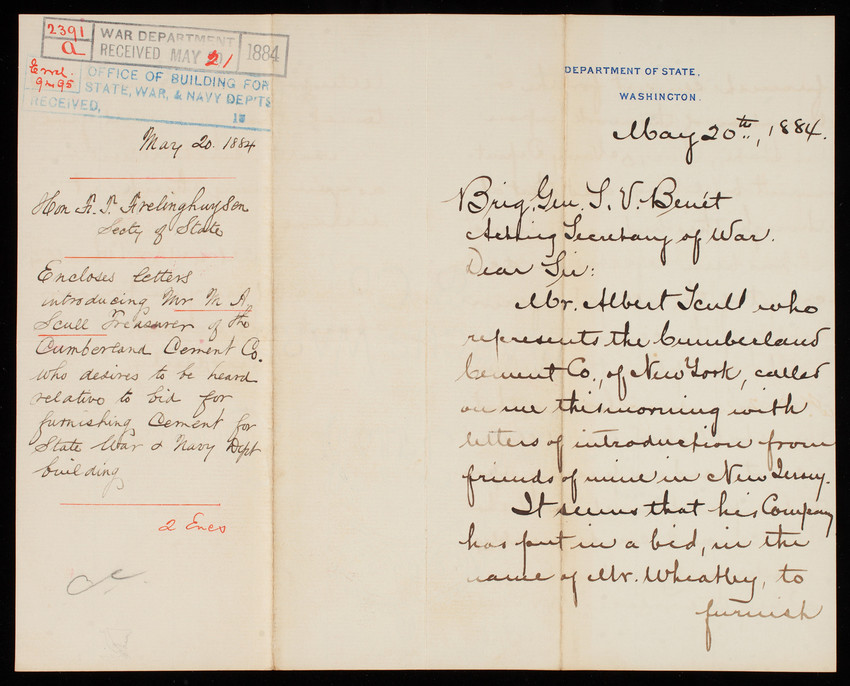 2391
a
WAR DEPARTMENT
RECEIVED MAY 21
1884
Encl.
9 m 95
OFFICE OF BUILDING FOR
STATE, WAR, & NAVY DEP'TS
RECEIVED,
18
May 20. 1884
Hon F. T. Frelinghuysen
Secty of State
Encloses letters
introducing Mr M A
Scull Treasurer of the
Cumberland Cement Co.
who desires to be heard
relative to bid for
furnishing Cement for
State War & Navy Dept
building
2 Encs
DEPARTMENT OF STATE.
WASHINGTON.
May 20th, 1884.
Brig. Gen. S. V. Benét
Acting Secretary of War.
Dear Sir:
Mr. Albert Scull who
represents the Cumberland
Cement Co., of New York, called
on me this morning with
letters of introduction from
friends of mine in New Jersey.
It seems that his Company
has put in a bid, in the
name of Mr. Wheatley, to
furnish